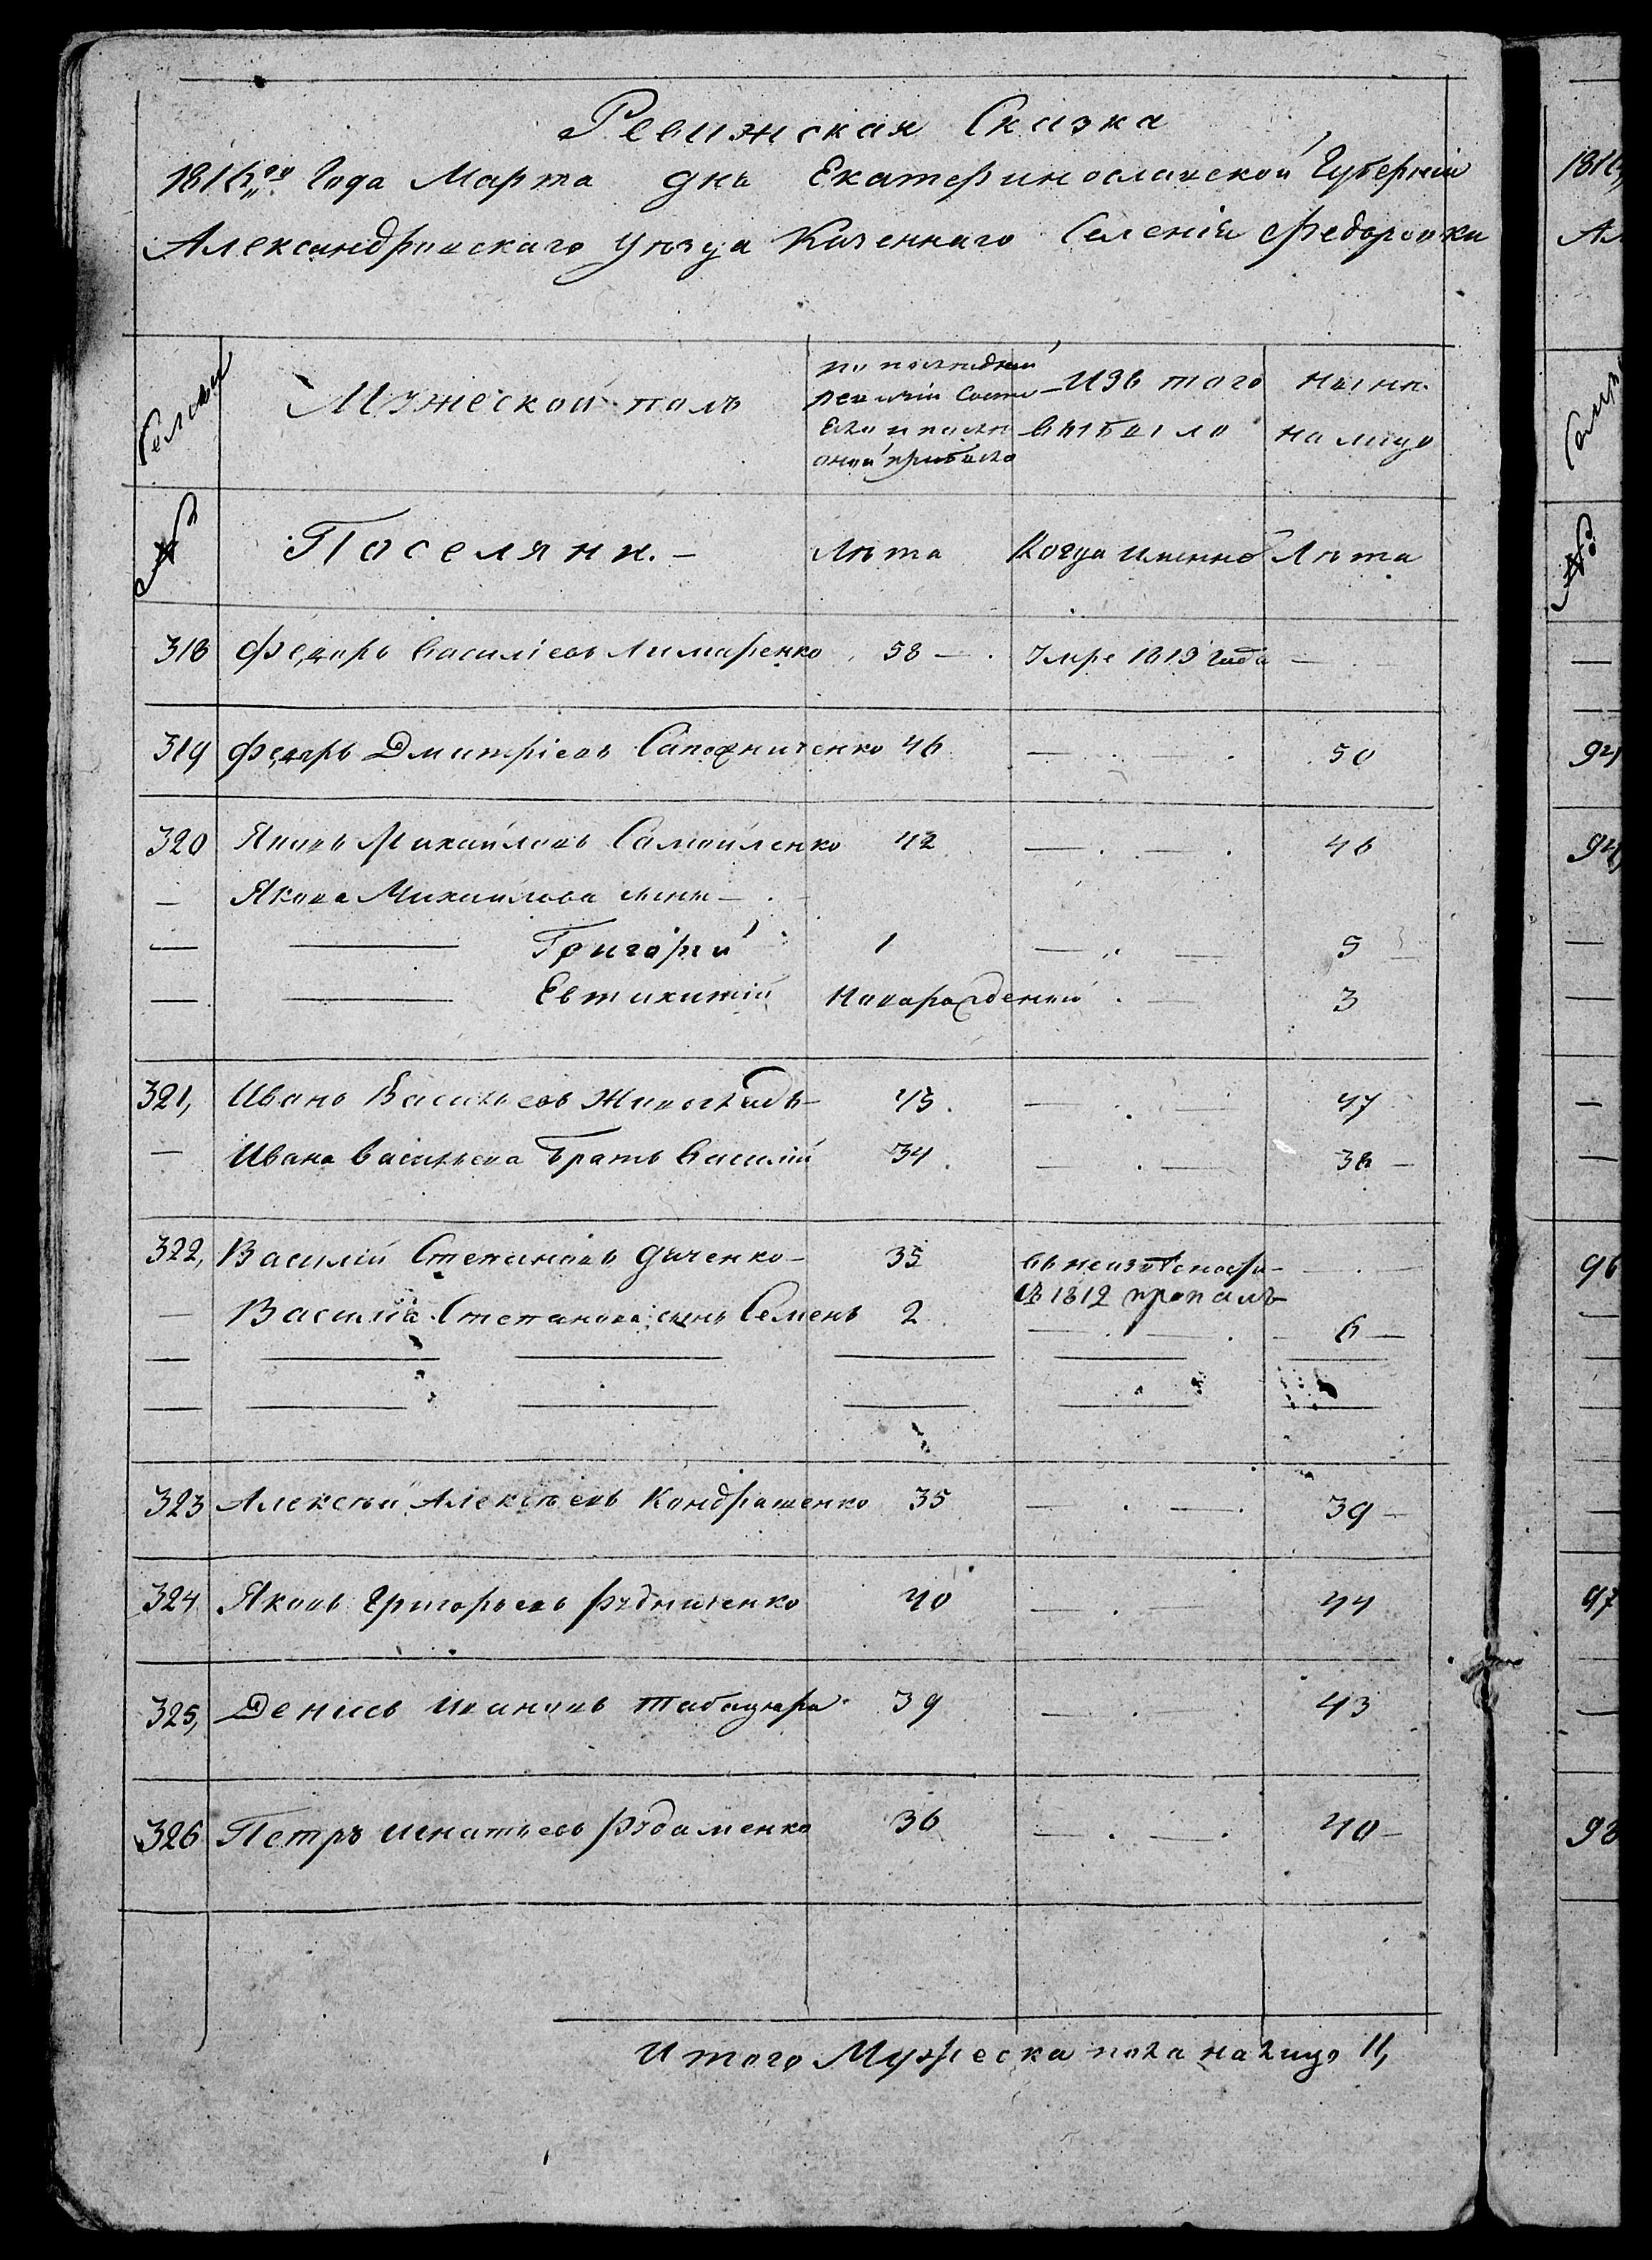 Ревижская Сказка
1816го Года Марта дня Екатеринославской Губернiи
Александровскаго Уѣзда Казеннаго Селенiя Федоровки
Мужеской полъ
по последней
ревизiи состо
яло и после
оной прибыло
Изъ того
выбыло
ныне
на лицо
№
Поселяни.
Лѣта
Когда именно
Лѣта
318 Федоръ Василiевъ Лимаренко 58 — Умре 1813 Года —
319 Федоръ Дмитрiевъ Сапожниченко 46 — . — . 50
320 Яковъ Михайловъ Самойленко 42 — . — . 46
— Якова Михайлова сыны —
— — Григорiй 1 — . — 5
— — Евтихитiй Новорожденой . — 3
321, Иванъ Васильевъ Живоглядъ 43. — . — 47
— Ивана Васильева Братъ Василiй 34. — . — 38 —
322, Василiй Степановъ Дяченко — 35 — . —
въ 1812 пропалъ
— Василiя Степанова сынъ Семенъ 2 — . — . 6 —
— — — — — —
— — — — — —
323 Алексѣй Алексѣевъ Кондрашенко 35 — . — . 39 —
324 Яковъ Григорьевъ Рудниченко 40 — . — 44
325, Денисъ Ивановъ 39 — . — . 43
326 Петръ Игнатьевъ 36 — . — . 40 —
Итого Мужеска пола налицо 11,
1816
Ал
№
94
94
96
97
98